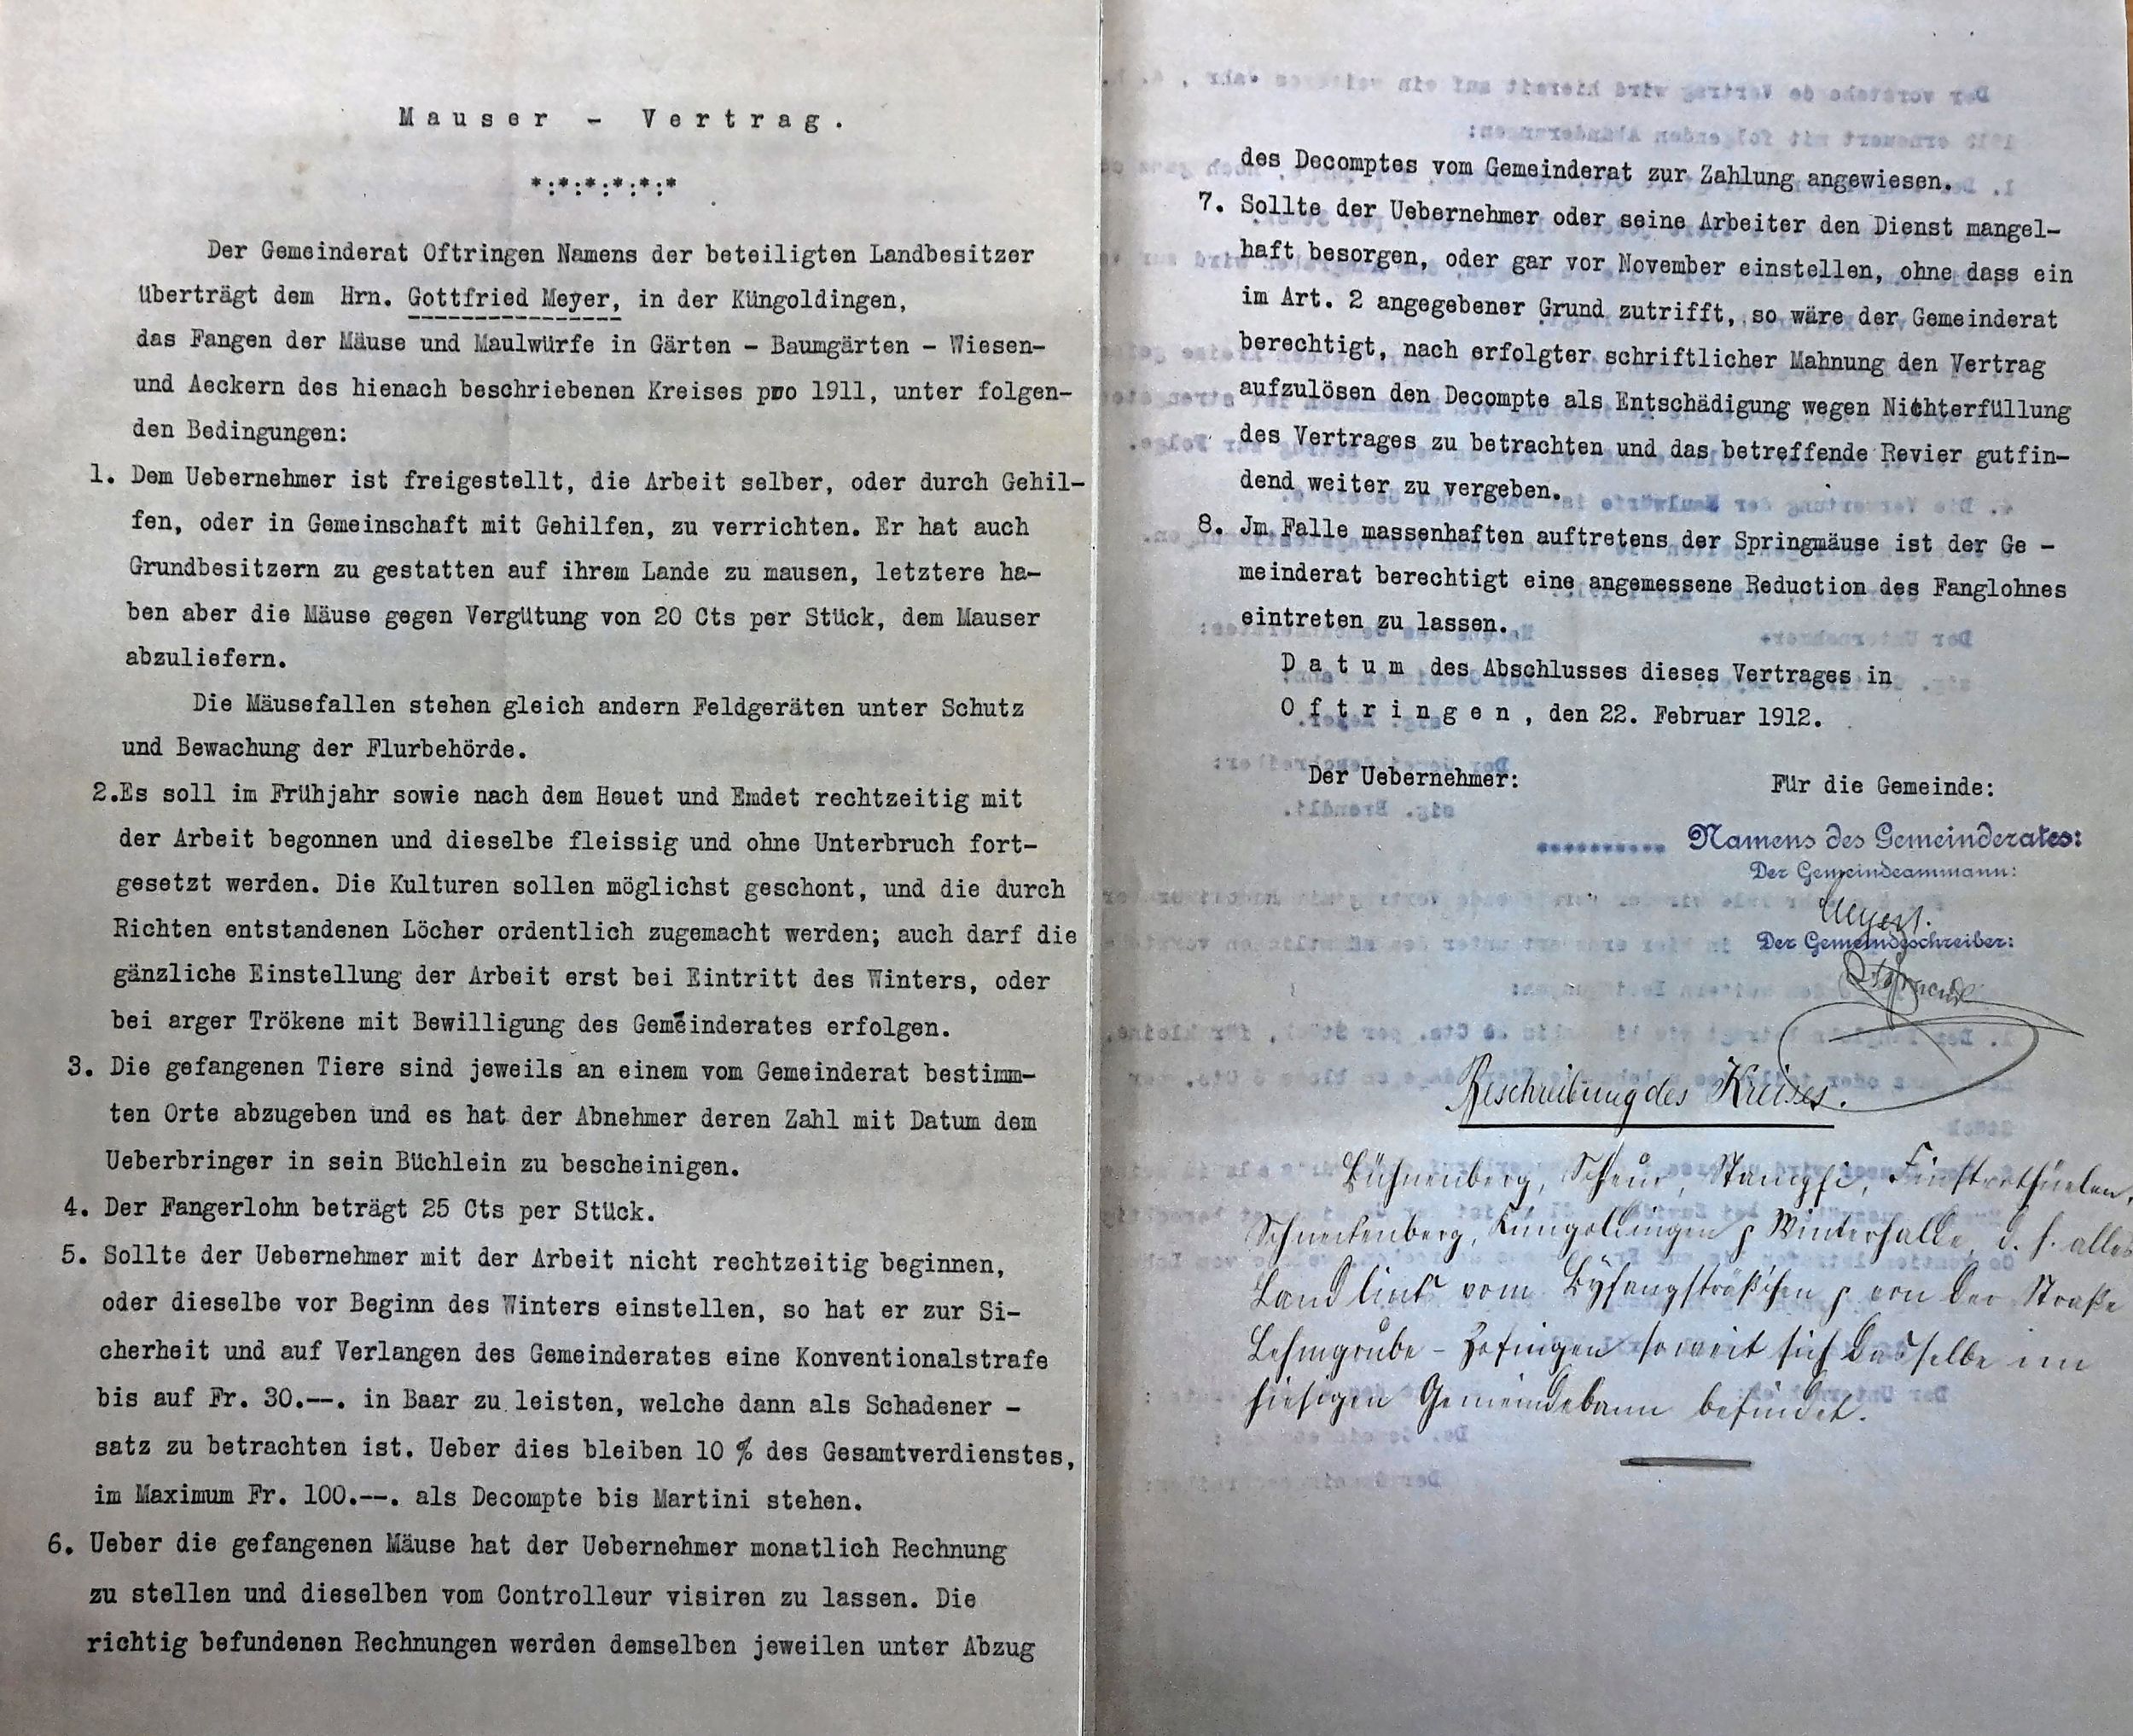 Mauser - Vertrag.
*:*:*:*:*:*
Der Gemeinderat Oftringen Namens der beteiligten Landbesitzer
überträgt dem Hrn. Gottfried Meyer, in der Küngoldingen,
das Fangen der Mäuse und Maulwürfe in Gärten - Baumgärten - Wiesen-
und Aeckern des hienach beschriebenen Kreises pro 1911, unter folgen-
den Bedingungen:
1. Dem Uebernehmer ist freigestellt, die Arbeit selber, oder durch Gehil-
fen, oder in Gemeinschaft mit Gehilfen, zu verrichten. Er hat auch
Grundbesitzern zu gestatten auf ihrem Lande zu mausen, letztere ha-
ben aber die Mäuse gegen Vergütung von 20 Cts per Stück, dem Mauser
abzuliefern.
Die Mäusefallen stehen gleich andern Feldgeräten unter Schutz
und Bewachung der Flurbehörde.
2.Es soll im Frühjahr sowie nach dem Heuet und Emdet rechtzeitig mit
der Arbeit begonnen und dieselbe fleissig und ohne Unterbruch fort-
gesetzt werden. Die Kulturen sollen möglichst geschont, und die durch
Richten entstandenen Löcher ordentlich zugemacht werden; auch darf die
gänzliche Einstellung der Arbeit erst bei Eintritt des Winters, oder
bei arger Trökene mit Bewilligung des Gemeinderates erfolgen.
3. Die gefangenen Tiere sind jeweils an einem vom Gemeinderat bestimm-
ten Orte abzugeben und es hat der Abnehmer deren Zahl mit Datum dem
Ueberbringer in sein Büchlein zu bescheinigen.
4. Der Fangerlohn beträgt 25 Cts per Stück.
5. Sollte der Uebernehmer mit der Arbeit nicht rechtzeitig beginnen,
oder dieselbe vor Beginn des Winters einstellen, so hat er zur Si-
cherheit und auf Verlangen des Gemeinderates eine Konventionalstrafe
bis auf Fr. 30.--. in Baar zu leisten, welche dann als Schadener -
satz zu betrachten ist. Ueber dies bleiben 10 % des Gesamtverdienstes,
im Maximum Fr. 100.--. als Decompte bis Martini stehen.
6. Ueber die gefangenen Mäuse hat der Uebernehmer monatlich Rechnung
zu stellen und dieselben vom Controlleur visiren zu lassen. Die
richtig befundenen Rechnungen werden demselben jeweilen unter Abzug
des Decomptes vom Gemeinderat zur Zahlung angewiesen.
7. Sollte der Uebernehmer oder seine Arbeiter den Dienst mangel-
haft besorgen, oder gar vor November einstellen, ohne dass ein
im Art. 2 angegebener Grund zutrifft, so wäre der Gemeinderat
berechtigt, nach erfolgter schriftlicher Mahnung den Vertrag
aufzulösen den Decompte als Entschädigung wegen Nichterfüllung
des Vertrages zu betrachten und das betreffende Revier gutfin-
dend weiter zu vergeben.
8. Jm Falle massenhaften auftretens der Springmäuse ist der Ge -
meinderat berechtigt eine angemessene Reduction des Fanglohnes
eintreten zu lassen.
Datum des Abschlusses dieses Vertrages in
Oftringen, den 22. Februar 1912.
Der Uebernehmer:
Für die Gemeinde:
Namens des Gemeinderates:
Der Gemeindeammann:
Der Gemeindeschreiber:
Beschreibung des Kreises.
Bühnenberg, Scheur, Stampfi, Finsterthüelen,
Schneckenberg, Küngoldingen & Winterhalde, d. h. alles
Land links vom Byfangsträßchen & von der Straße
Lehmgrube - Zofingen soweit sich dasselbe im
hiesigen Gemeindebann befindet.